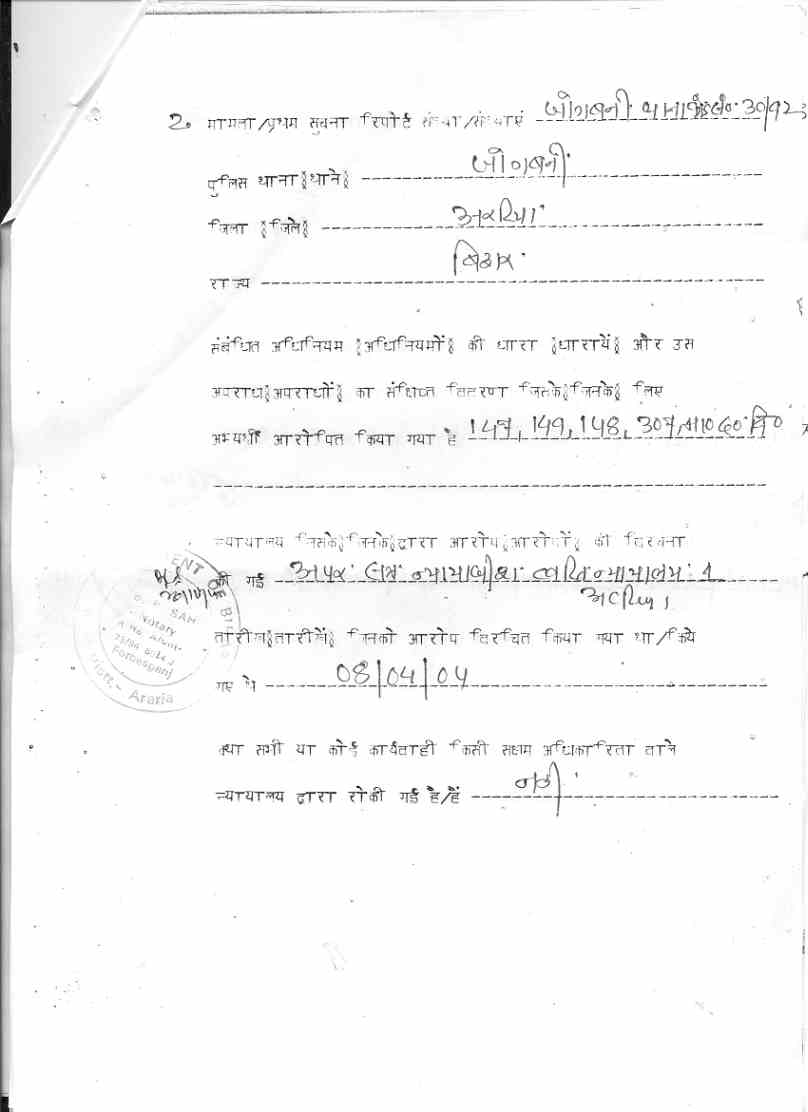 2. मामला/प्रथम सूचना रिपोर्ट संख्या/संख्याएं जोगबनी थाना कां0सं0 30/92
पुलिस थाना {थाने} जोगबनी
जिला {जिले} अररिया
राज्य बिहार
संबंधित अधिनियम {अधिनियमों} की धारा {धारायें} और उस
अपराध{अपराधों} का संक्षिप्त विवरण जिसके{जिनके} लिए
अभ्यर्थी आरोपित किया गया है 147, 149, 148, 307, भा0द0वि0
न्यायालय जिसके{जिनके}द्वारा आरोप{आरोपों} की विरचना
की गई अपर सत्र न्यायाधीश त्वरित न्यायालय 1
अररिया।
तारीख{तारीखें} जिनको आरोप विरचित किया गया था/किये
गए थे 08/04/04
क्या सभी या कोई कार्यवाही किसी सक्षम अधिकारिता वाले
न्यायालय द्वारा रोकी गई है/हैं नहीं
SAH
Notary
Forbesganj
Distt.- Araria